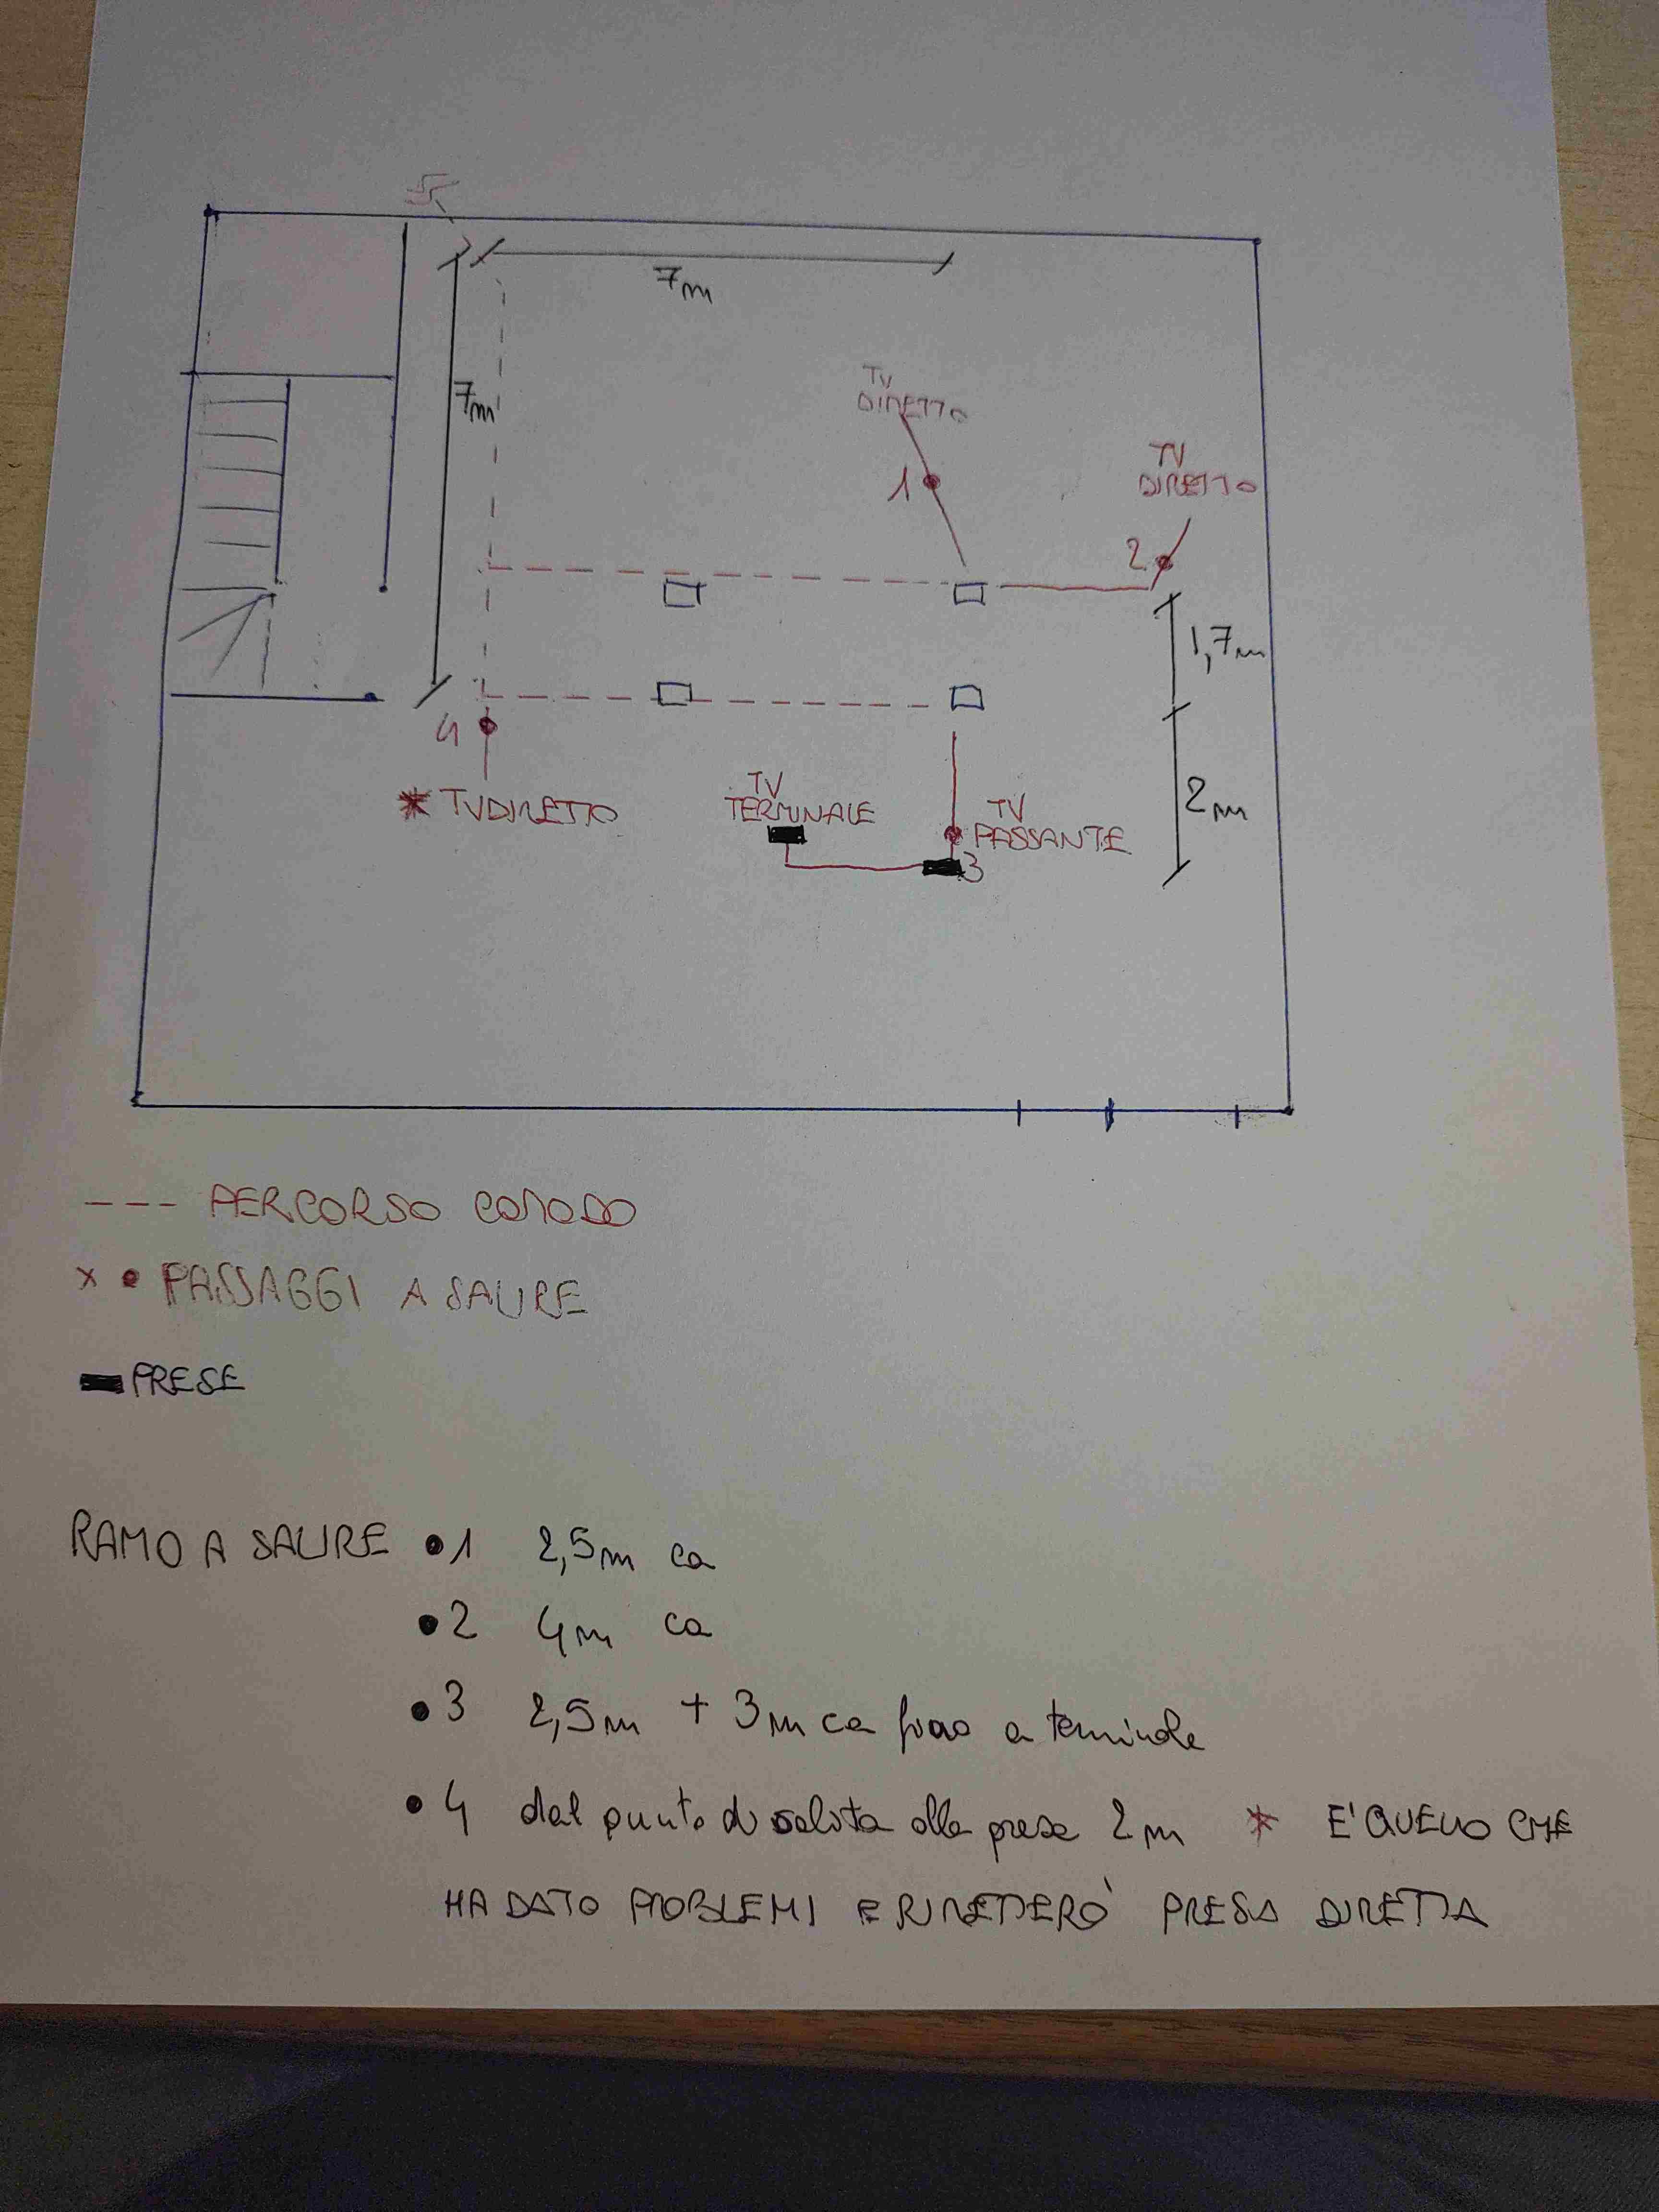 7m
7m
TV
DIRETTO
1
TV
DIRETTO
2
1,7m
4
* TV DIRETTO
TV
TERMINALE
TV
PASSANTE
3
2m
--- PERCORSO COMODO
x • PASSAGGI A SALIRE
PRESE
RAMO A SALIRE •1 2,5m ca
•2 4m ca
•3 2,5m + 3m ca fino a terminale
•4 dal punto di salita alla presa 2m * E' QUELLO CHE
HA DATO PROBLEMI E RIMETTERO' PRESA DIRETTA